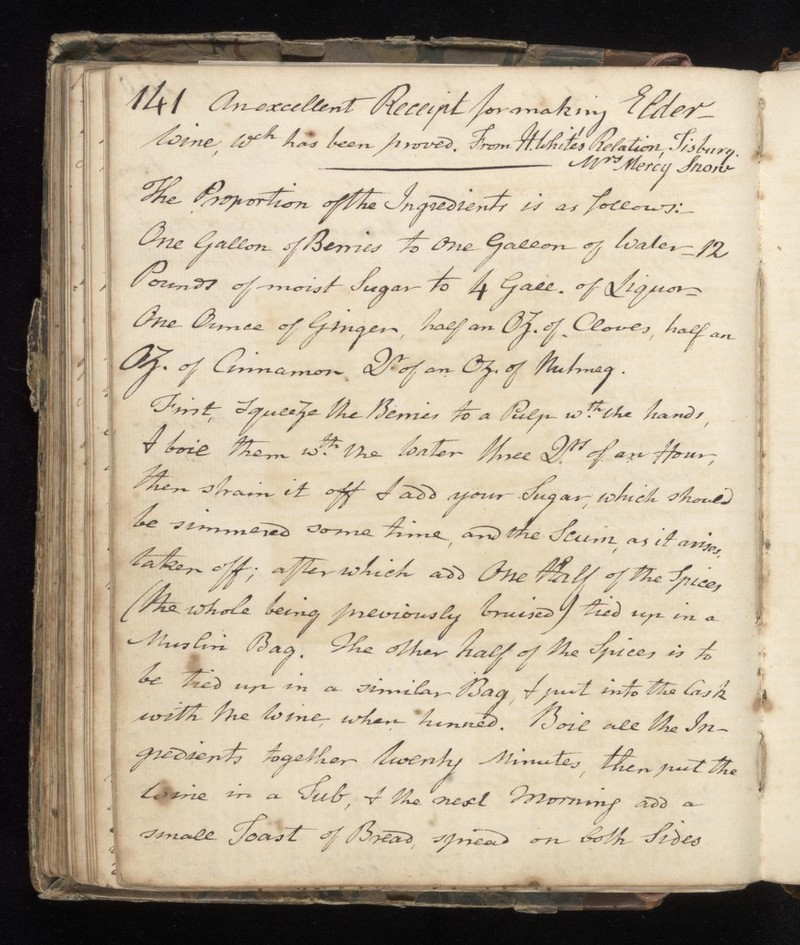 141 An excellent Receipt for making Elder-
Wine, wch has been proved. From H. White's Relation, Tisbury.
Mrs Mercy Snow
The Proportion of the Ingredients is as follows:-
One Gallon of Berries to One Gallon of Water - 12
Pounds of moist Sugar to 4 Gall. of Liquor -
One Ounce of Ginger, half an Oz. of Cloves, half an
Oz. of Cinnamon, Qr. of an Oz. of Nutmeg.
First, squeeze the Berries to a Pulp wth. the hands,
& boil them wth. the Water three Qrs of an Hour,
then strain it off & add your Sugar, which should
be simmered some time, and the Scum, as it arises,
taken off; after which add One Half of the Spices
(the whole being previously bruised) tied up in a
Muslin Bag. The other half of the Spices is to
be tied up in a similar Bag, & put into the Cask
with the Wine, when tunned. Boil all the In-
gredients together twenty Minutes, then put the
Wine in a Tub, & the next Morning add a
small Toast of Bread, spread on both Sides